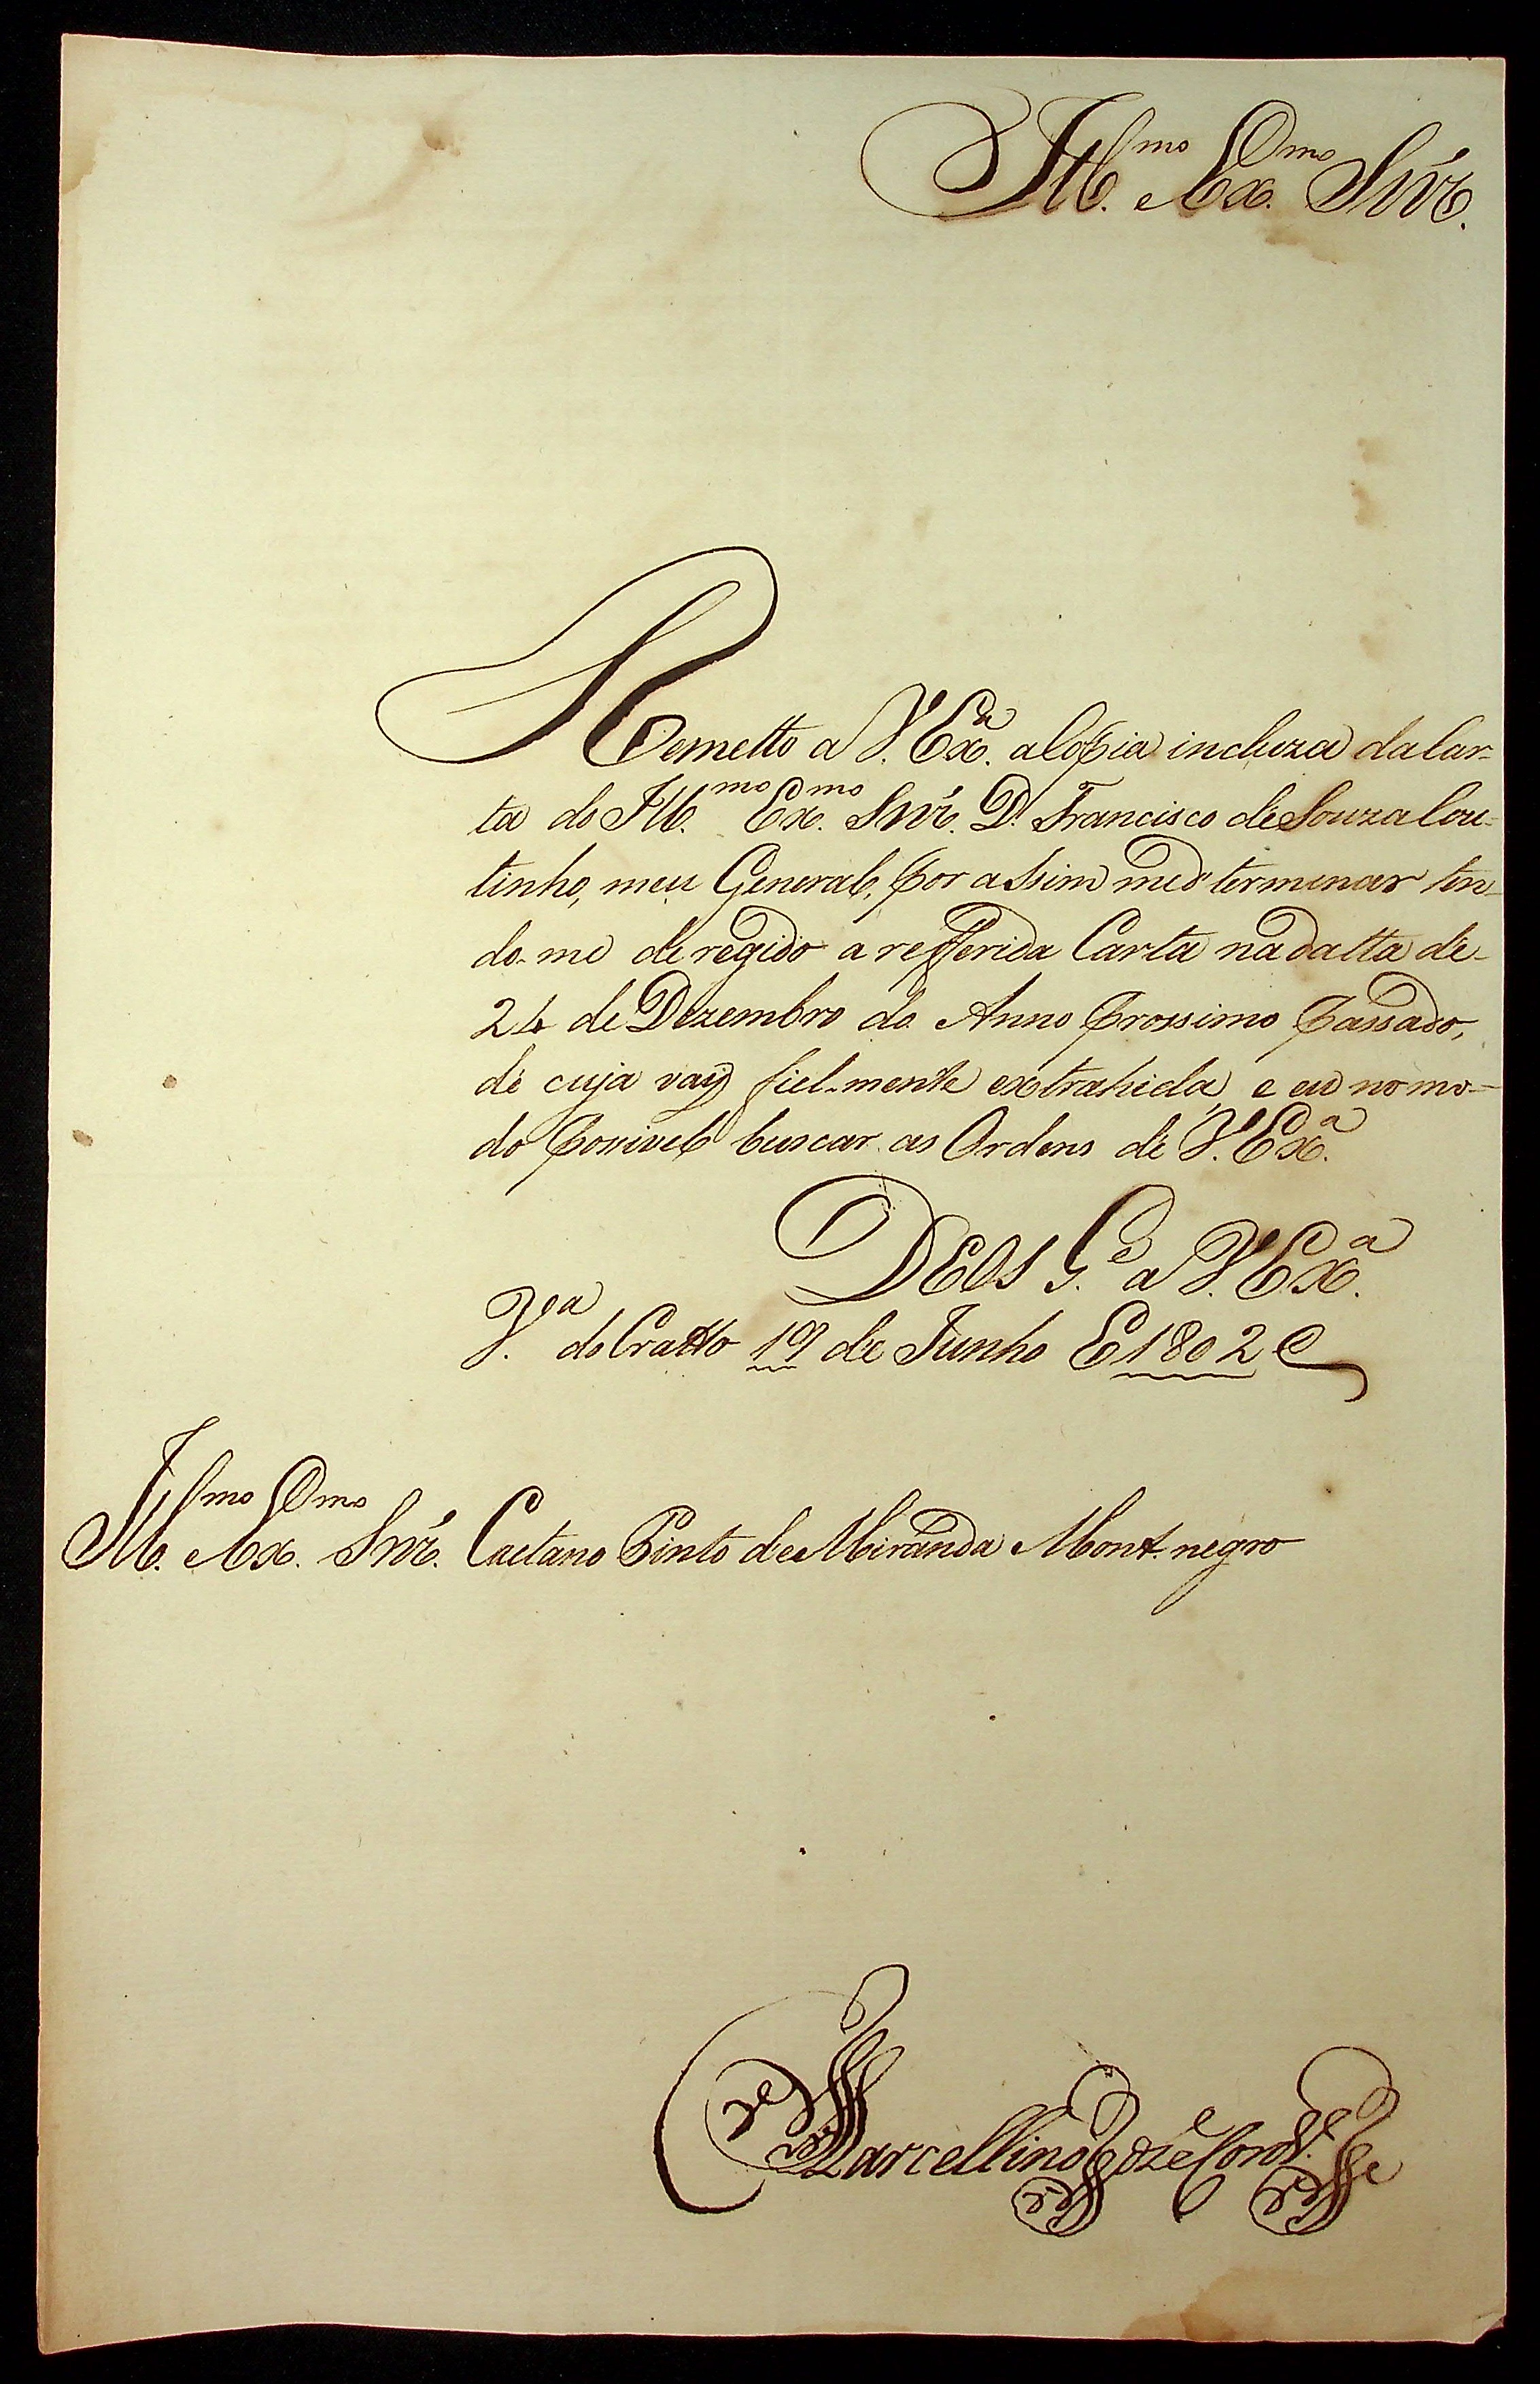 Ill.mo e Ex.mo Snr̃.
Remetto a V. Ex.a a Copia incluza da Car-
ta do Ill.mo Ex.mo Snr̃. D. Francisco de Souza Cou-
tinho, meu General, por assim me determinar ten-
do-me deregido a refferida Carta na datta de
24 de Dezembro do Anno prossimo passado,
de cuja vay fiel-mente extrahida, e eu no mo-
do possivel buscar as Ordens de V. Ex.a
DEOS G.e a V. Ex.a
V.a do Cratto 19 de Junho E 1802
Ill.mo e Ex.mo Snr̃. Caetano Pinto de Miranda Montenegro
Marcellino Jozé Cord.